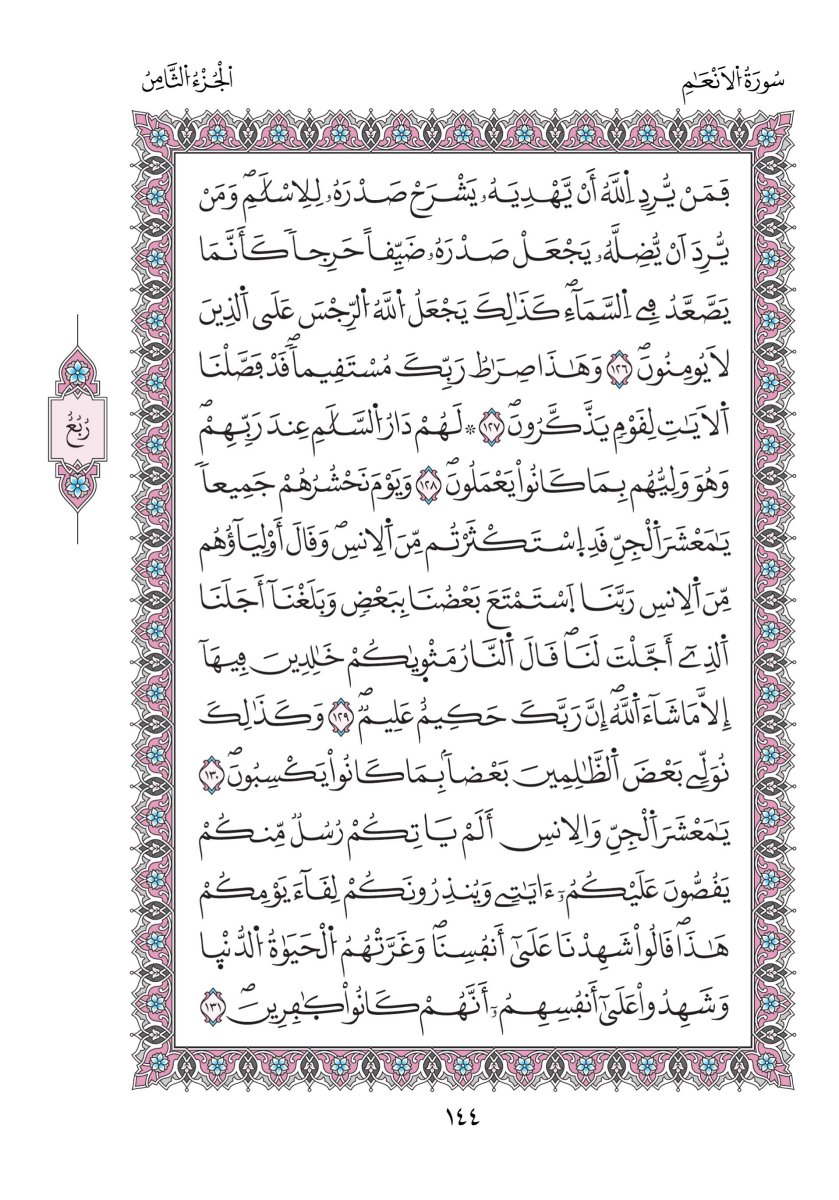 سُورَةُ الَانْعَٰمِ
الْجُزْءُ الثَّامِنُ
فَمَنْ يُّرِدِ اِللَّهُ أَنْ يَّهْدِيَهُۥ يَشْرَحْ صَدْرَهُۥ لِلِاسْلَٰمِۖ وَمَنْ
يُّرِدَ اَنْ يُّضِلَّهُۥ يَجْعَلْ صَدْرَهُۥ ضَيِّقاً حَرِجاً كَأَنَّمَا
يَصَّعَّدُ فِے اِلسَّمَآءِۖ كَذَٰلِكَ يَجْعَلُ اُللَّهُ اُلرِّجْسَ عَلَي اَلذِينَ
لَا يُومِنُونَۖ ١٢٦ وَهَٰذَا صِرَٰطُ رَبِّكَ مُسْتَقِيماًۖ قَدْ فَصَّلْنَا
اَلَايَٰتِ لِقَوْمٖ يَذَّكَّرُونَۖ ١٢٧ * لَهُمْ دَارُ اُلسَّلَٰمِ عِندَ رَبِّهِمْۖ
وَهُوَ وَلِيُّهُم بِمَا كَانُواْ يَعْمَلُونَۖ ١٢٨ وَيَوْمَ نَحْشُرُهُمْ جَمِيعاً
يَٰمَعْشَرَ اَلْجِنِّ قَدِ اِسْتَكْثَرْتُم مِّنَ اَلِانسِۖ وَقَالَ أَوْلِيَآؤُهُم
مِّنَ اَلِانسِ رَبَّنَا اَسْتَمْتَعَ بَعْضُنَا بِبَعْضٖ وَبَلَغْنَآ أَجَلَنَا
اَلذِےٓ أَجَّلْتَ لَنَاۖ قَالَ اَلنَّارُ مَثْوٜيٰكُمْ خَٰلِدِينَ فِيهَآ
إِلَّا مَا شَآءَ اَللَّهُۖ إِنَّ رَبَّكَ حَكِيمٌ عَلِيمٞۖ ١٢٩ وَكَذَٰلِكَ
نُوَلِّے بَعْضَ اَلظَّٰلِمِينَ بَعْضاَۢ بِمَا كَانُواْ يَكْسِبُونَۖ ١٣٠
يَٰمَعْشَرَ اَلْجِنِّ وَالِانسِ أَلَمْ يَاتِكُمْ رُسُلٞ مِّنكُمْ
يَقُصُّونَ عَلَيْكُمُۥٓ ءَايَٰتِے وَيُنذِرُونَكُمْ لِقَآءَ يَوْمِكُمْ
هَٰذَاۖ قَالُواْ شَهِدْنَا عَلَيٰٓ أَنفُسِنَاۖ وَغَرَّتْهُمُ اُلْحَيَوٰةُ اُلدُّنْيٜا
وَشَهِدُواْ عَلَيٰٓ أَنفُسِهِمُۥٓ أَنَّهُمْ كَانُواْ كٰٜفِرِينَۖ ١٣١
رُبُعٌ
١٤٤